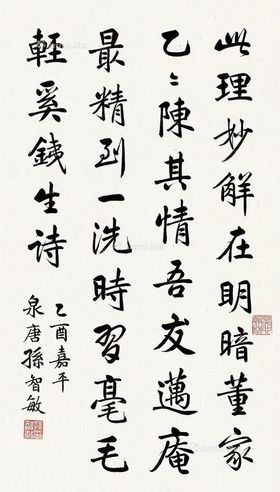 此理妙解在明暗董家
乙乙陳其情吾友邁庵
最精到一洗時習毫毛
輕奚鐵生詩
乙酉嘉平
泉唐孫智敏